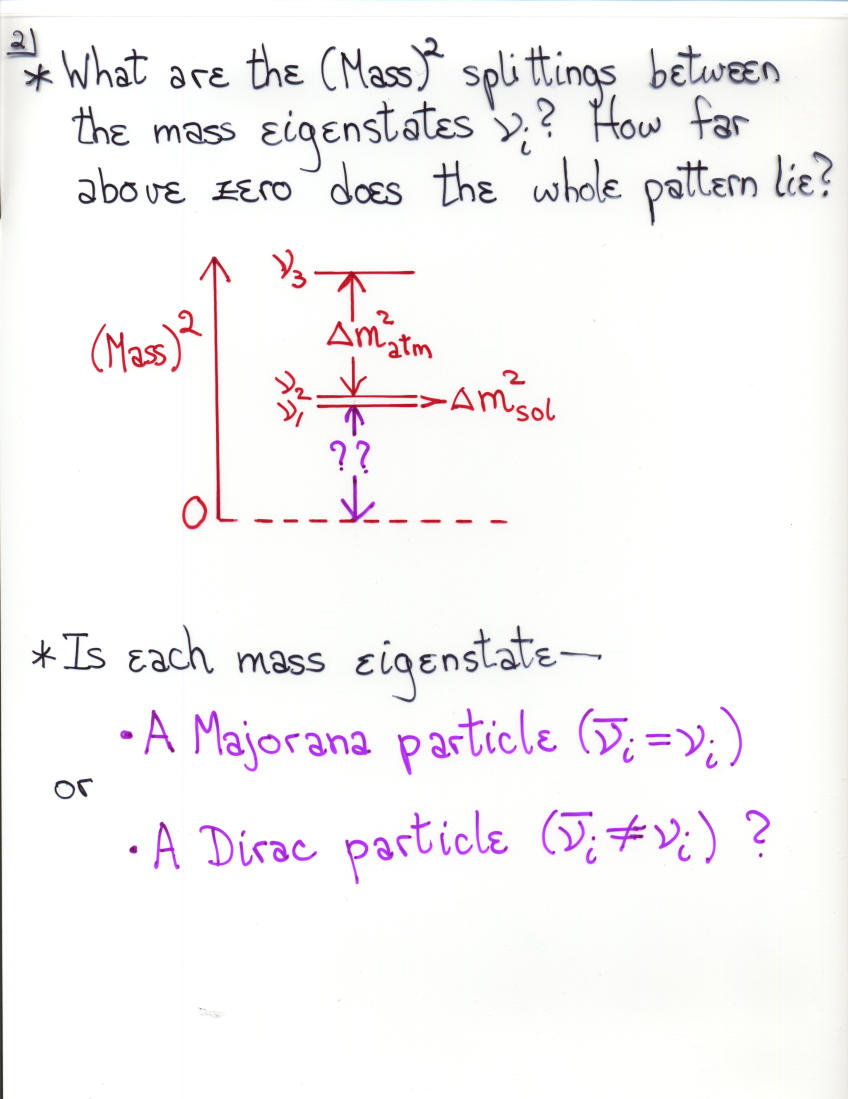 2)
* What are the (Mass)² splittings between
the mass eigenstates νᵢ? How far
above zero does the whole pattern lie?
ν₃
(Mass)²
Δm²atm
ν₂
ν₁
Δm²sol
??
0
* Is each mass eigenstate—
• A Majorana particle (ν̅ᵢ = νᵢ)
or
• A Dirac particle (ν̅ᵢ ≠ νᵢ) ?